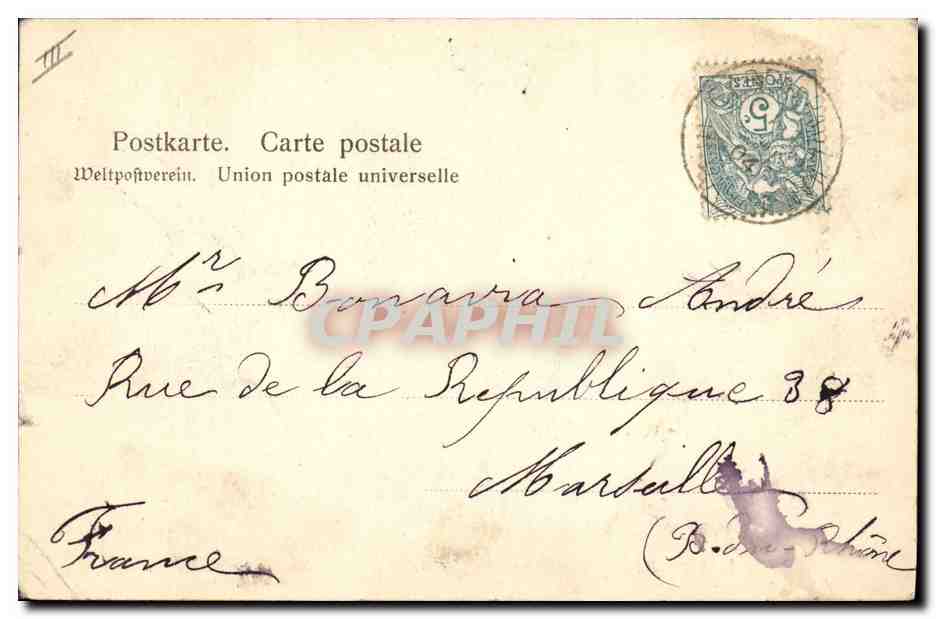 III
Postkarte. Carte postale
Weltpostverein. Union postale universelle
POSTES
5c
04
Mr Bonavia André
CPAPHIL
Rue de la Republique 38
Marseille
France
(B. du-Rhône